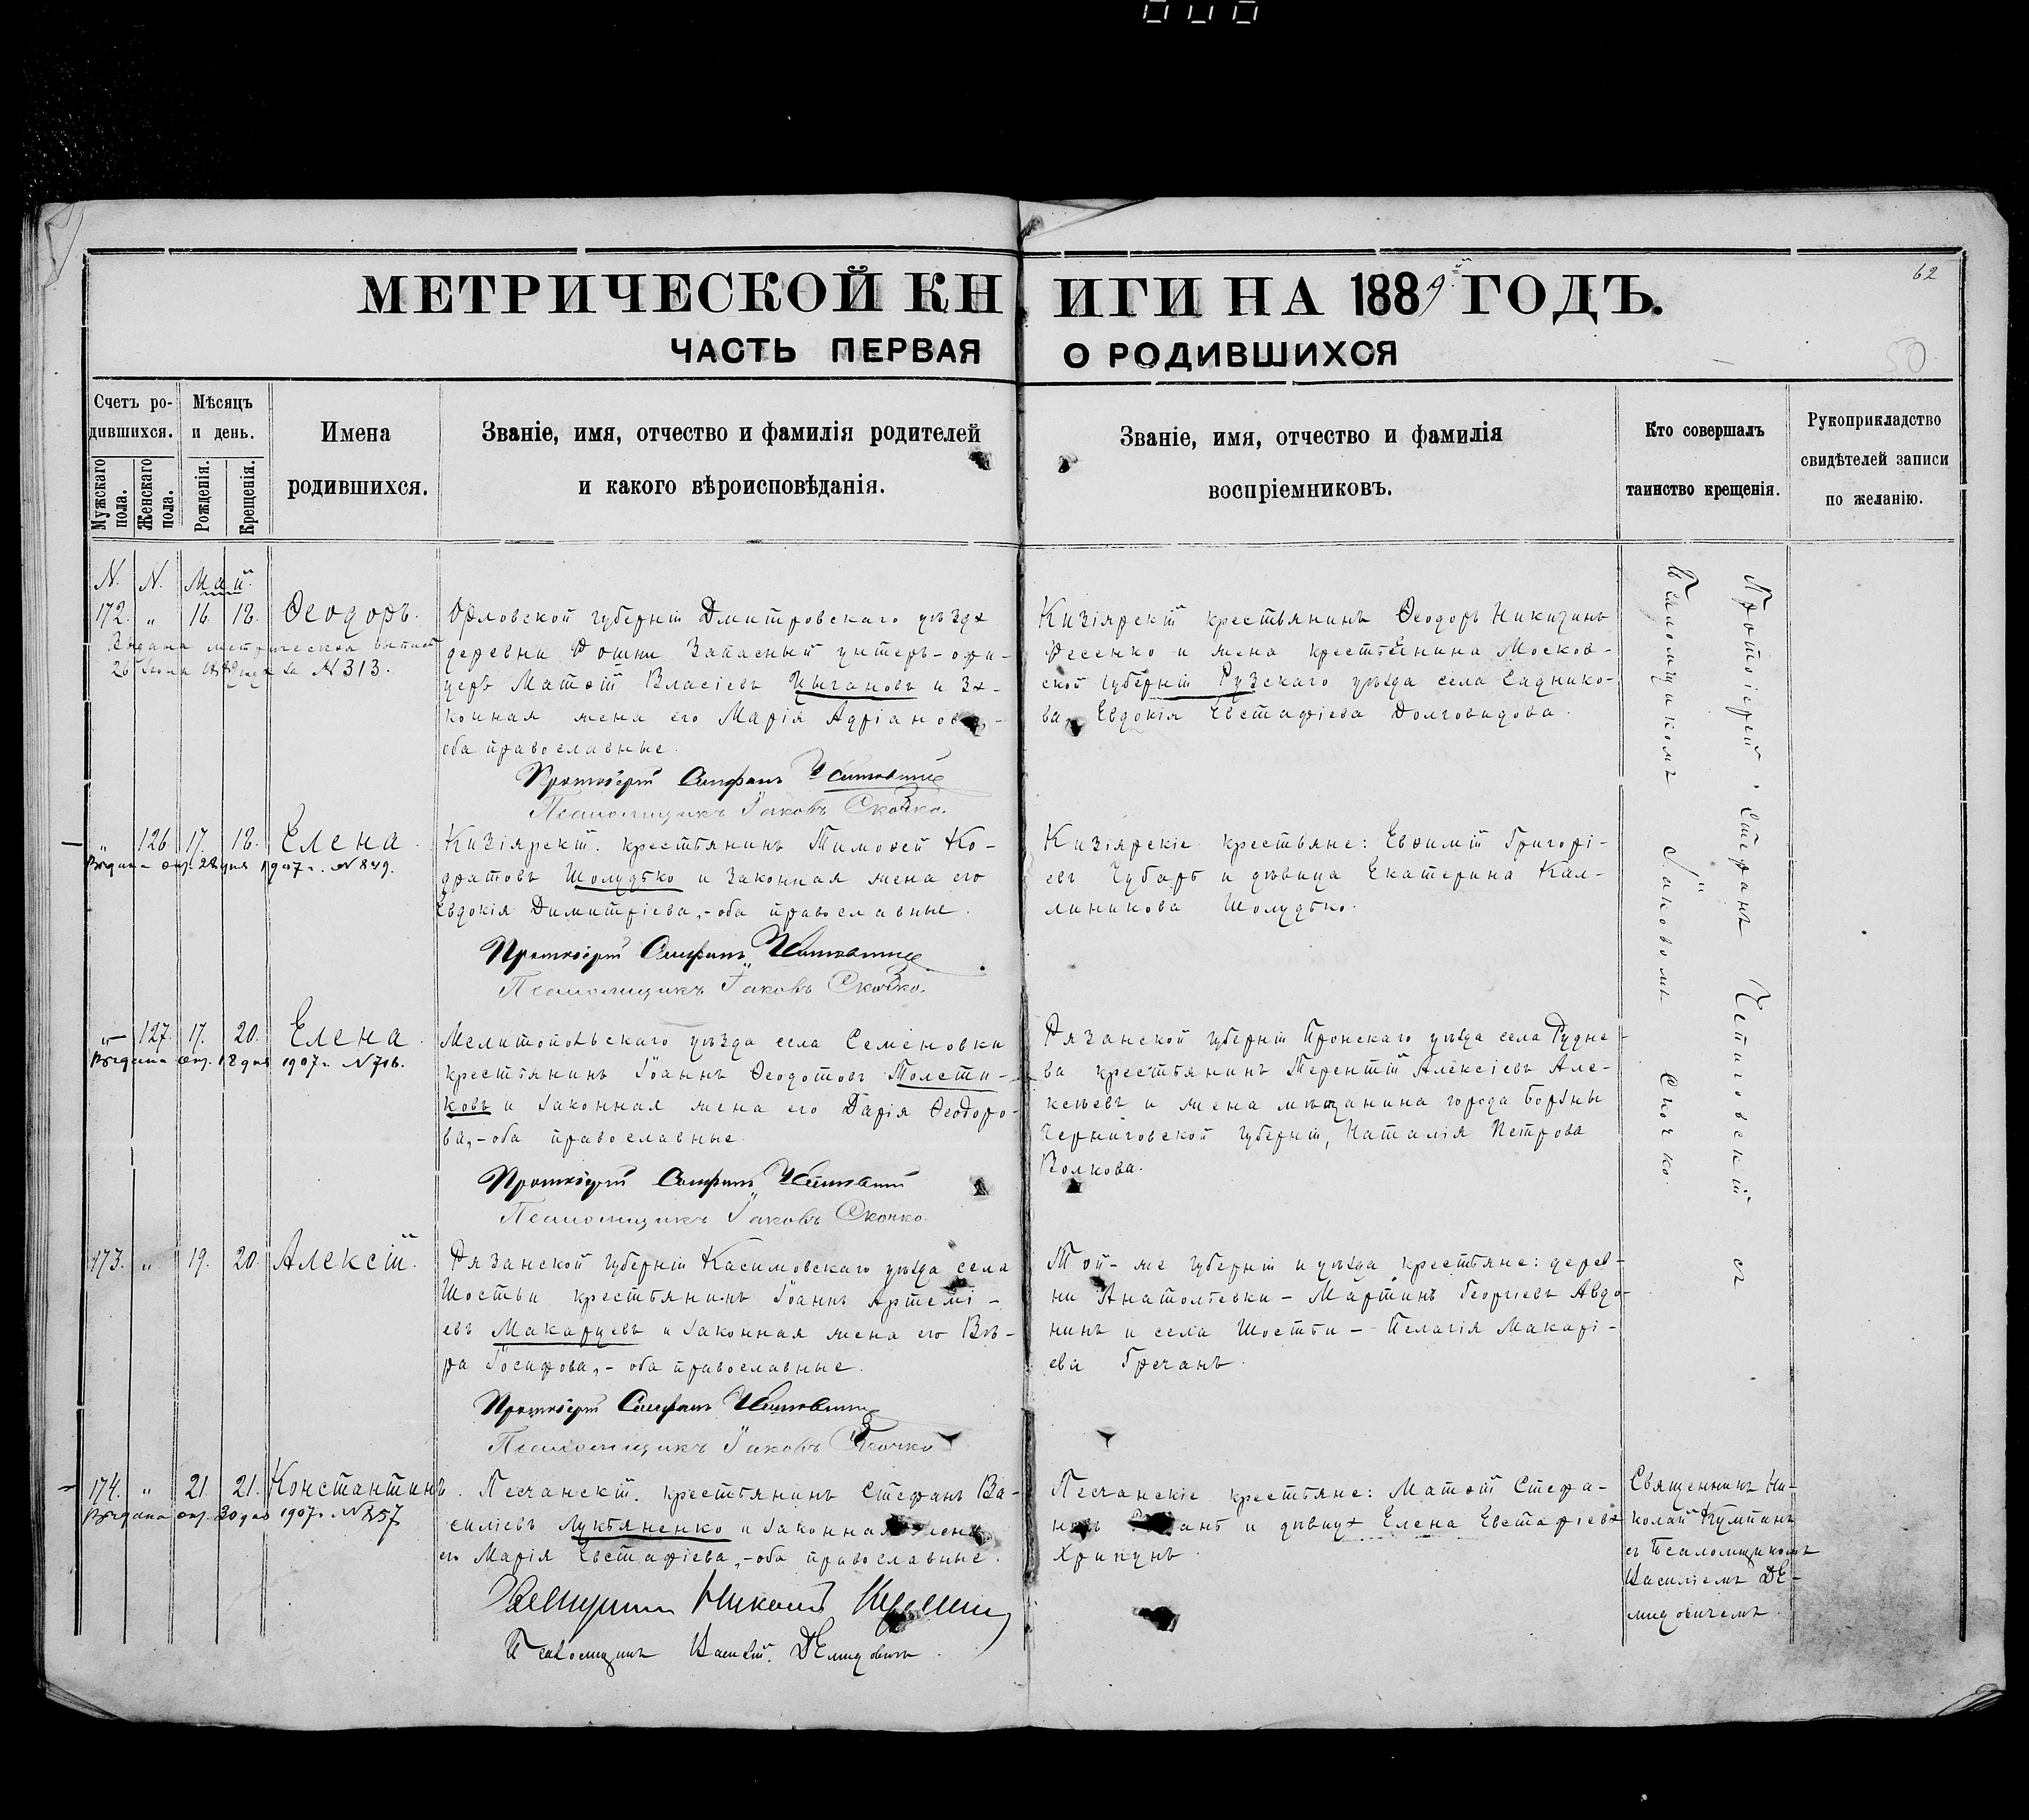 МЕТРИЧЕСКОЙ КНИГИ НА 1889й ГОДЪ.
62
ЧАСТЬ ПЕРВАЯ О РОДИВШИХСЯ
50
Счетъ ро-
дившихся.
Мужскаго пола.
Женскаго пола.
Мѣсяцъ
и день.
Рожденія.
Крещенія.
Имена
родившихся.
Званіе, имя, отчество и фамилія родителей
и какого вѣроисповѣданія.
Званіе, имя, отчество и фамилія
воспріемниковъ.
Кто совершалъ
таинство крещенія.
Рукоприкладство
свидѣтелей записи
по желанію.
N. N. Май.
172. " 16. 18. Ѳеодоръ.
Выдана метрическая
№ 313.
Орловской губерніи Дмитровскаго уѣзда
деревни Запасный унтеръ-офи-
церъ Матѳій Власіевъ Цыгановъ и за-
конная жена его Марія Адріанова,-
оба православные.
Протоіерей Стефанъ Читовскій
Псаломщикъ Іаковъ Скочко.
Кизіярскій крестьянинъ Ѳеодоръ Никитинъ
Фесенко и жена крестьянина Москов-
ской губерніи Рузскаго уѣзда села
Евдокія Евстафіева Долговидова.
" 126. 17. 18. Елена.
Выдана 28 дня 1907 г. № 849.
Кизіярскій крестьянинъ Тимоѳей Ко-
дратовъ Шолудько и законная жена его
Евдокія Димитріева,-оба православные.
Протоіерей Стефанъ Читовскій
Псаломщикъ Іаковъ Скочко.
Кизіярскіе крестьяне: Евѳимій Григорі-
евъ Чубарь и дѣвица Екатерина Кал-
линикова Шолудько.
" 127. 17. 20. Елена.
Выдана 18 дня 1907 г. № 706.
Мелитопольскаго уѣзда села Семеновки
крестьянинъ Іоаннъ Ѳеодотовъ Толсти-
ковъ и законная жена его Дарія Ѳеодоро-
ва,-оба православные.
Протоіерей Стефанъ Читовскій
Псаломщикъ Іаковъ Скочко.
Рязанской губерніи Пронскаго уѣзда села Рудне-
ва крестьянинъ Терентій Алексіевъ Але-
ксѣевъ и жена мѣщанина города Борзны
Черниговской губерніи, Наталія Петрова
Волкова.
173. " 19. 20. Алексій.
Рязанской губерніи Касимовскаго уѣзда села
Шостьи крестьянинъ Іоаннъ Артемі-
евъ Макарцевъ и законная жена его Вѣ-
ра Іосифова,- оба православные.
Протоіерей Стефанъ Читовскій
Псаломщикъ Іаковъ Скочко
Той-же губерніи и уѣзда крестьяне: дерев-
ни Анатольевки - Мартинъ Георгіевъ Авдо-
нинъ и села Шостьи - Пелагія Макарі-
ева Гречанъ.
Протоіерей Стефанъ Читовскій съ
Псаломщикомъ Іаковомъ Скочко.
174. " 21. 21. Константинъ.
Выдана 30 дня 1907 г. № 857
Песчанскій крестьянинъ Стефанъ Ва-
силіевъ Лукьяненко и законная жена
его Марія Евстафіева,-оба православные.
Священникъ Николай
Псаломщикъ Василій Демидовичъ.
Песчанскіе крестьяне: Матѳій Стефа-
новъ и дѣвица Елена Евстафіева
Хрипунъ.
Священникъ Ни-
колай
съ Псаломщикомъ
Василіемъ Де-
мидовичемъ.